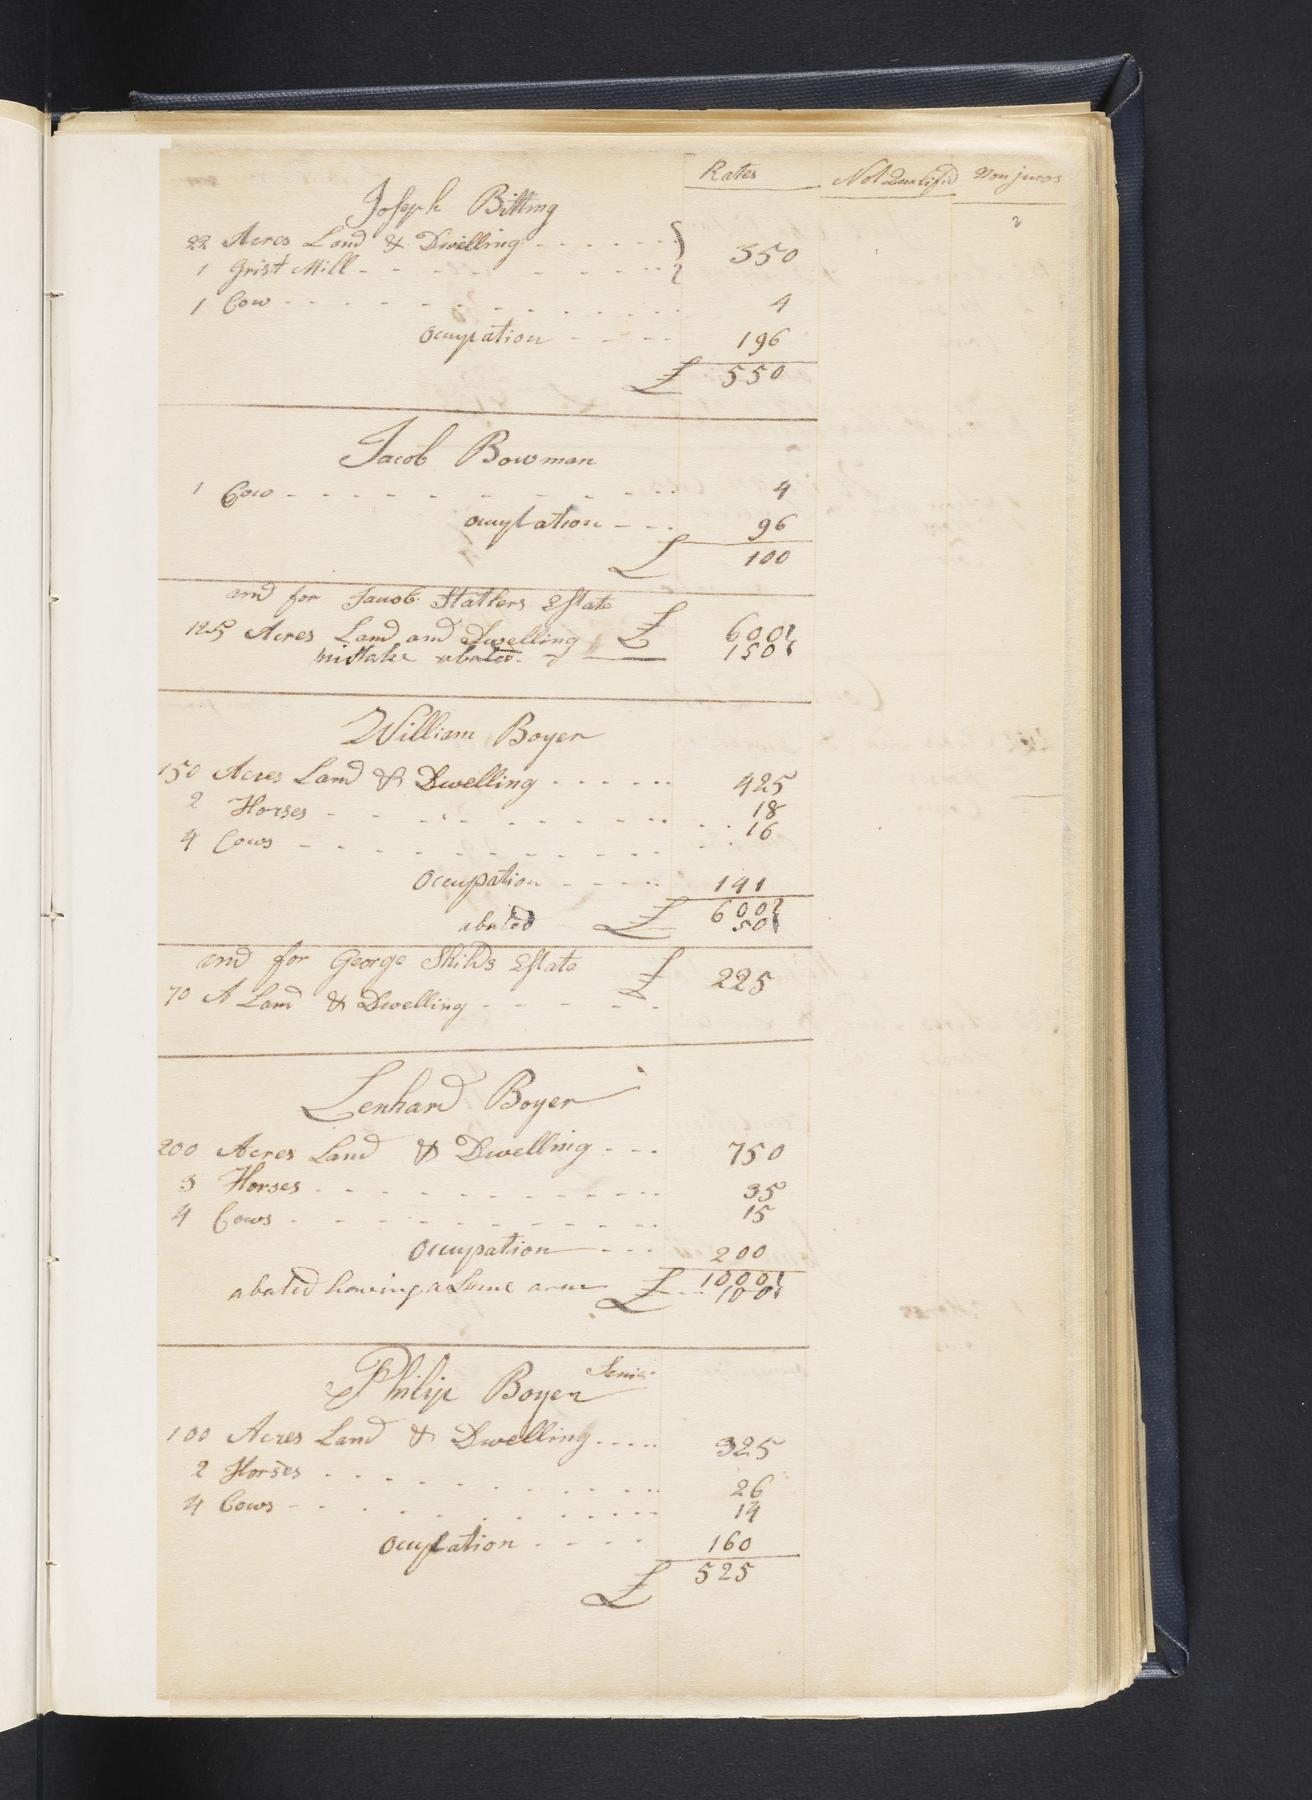 Rates Not Qualifid Non juros
2
Joseph Bitting
22 Acres Land & Dwelling
1 Grist Mill 350
1 Cow 4
Occupation 196
£ 550
Jacob Bowman
1 Cow 4
occupation 96
£ 100
and for Jacob Statlers Estate
125 Acres Land and Dwelling £ 600
mistake abated 150
William Boyer
150 Acres Land & Dwelling 425
2 Horses 18
4 Cows 16
Occupation 141
£ 600
abated 50
and for George Shilds Estate £ 225
70 A Land & Dwelling
Lenhard Boyer
200 Acres Land & Dwelling 750
3 Horses 35
4 Cows 15
Occupation 200
£ 1000
abated having a Lame arm 100
Philip Boyer Senior
100 Acres Land & Dwelling 325
2 Horses 26
4 Cows 14
Occupation 160
£ 525